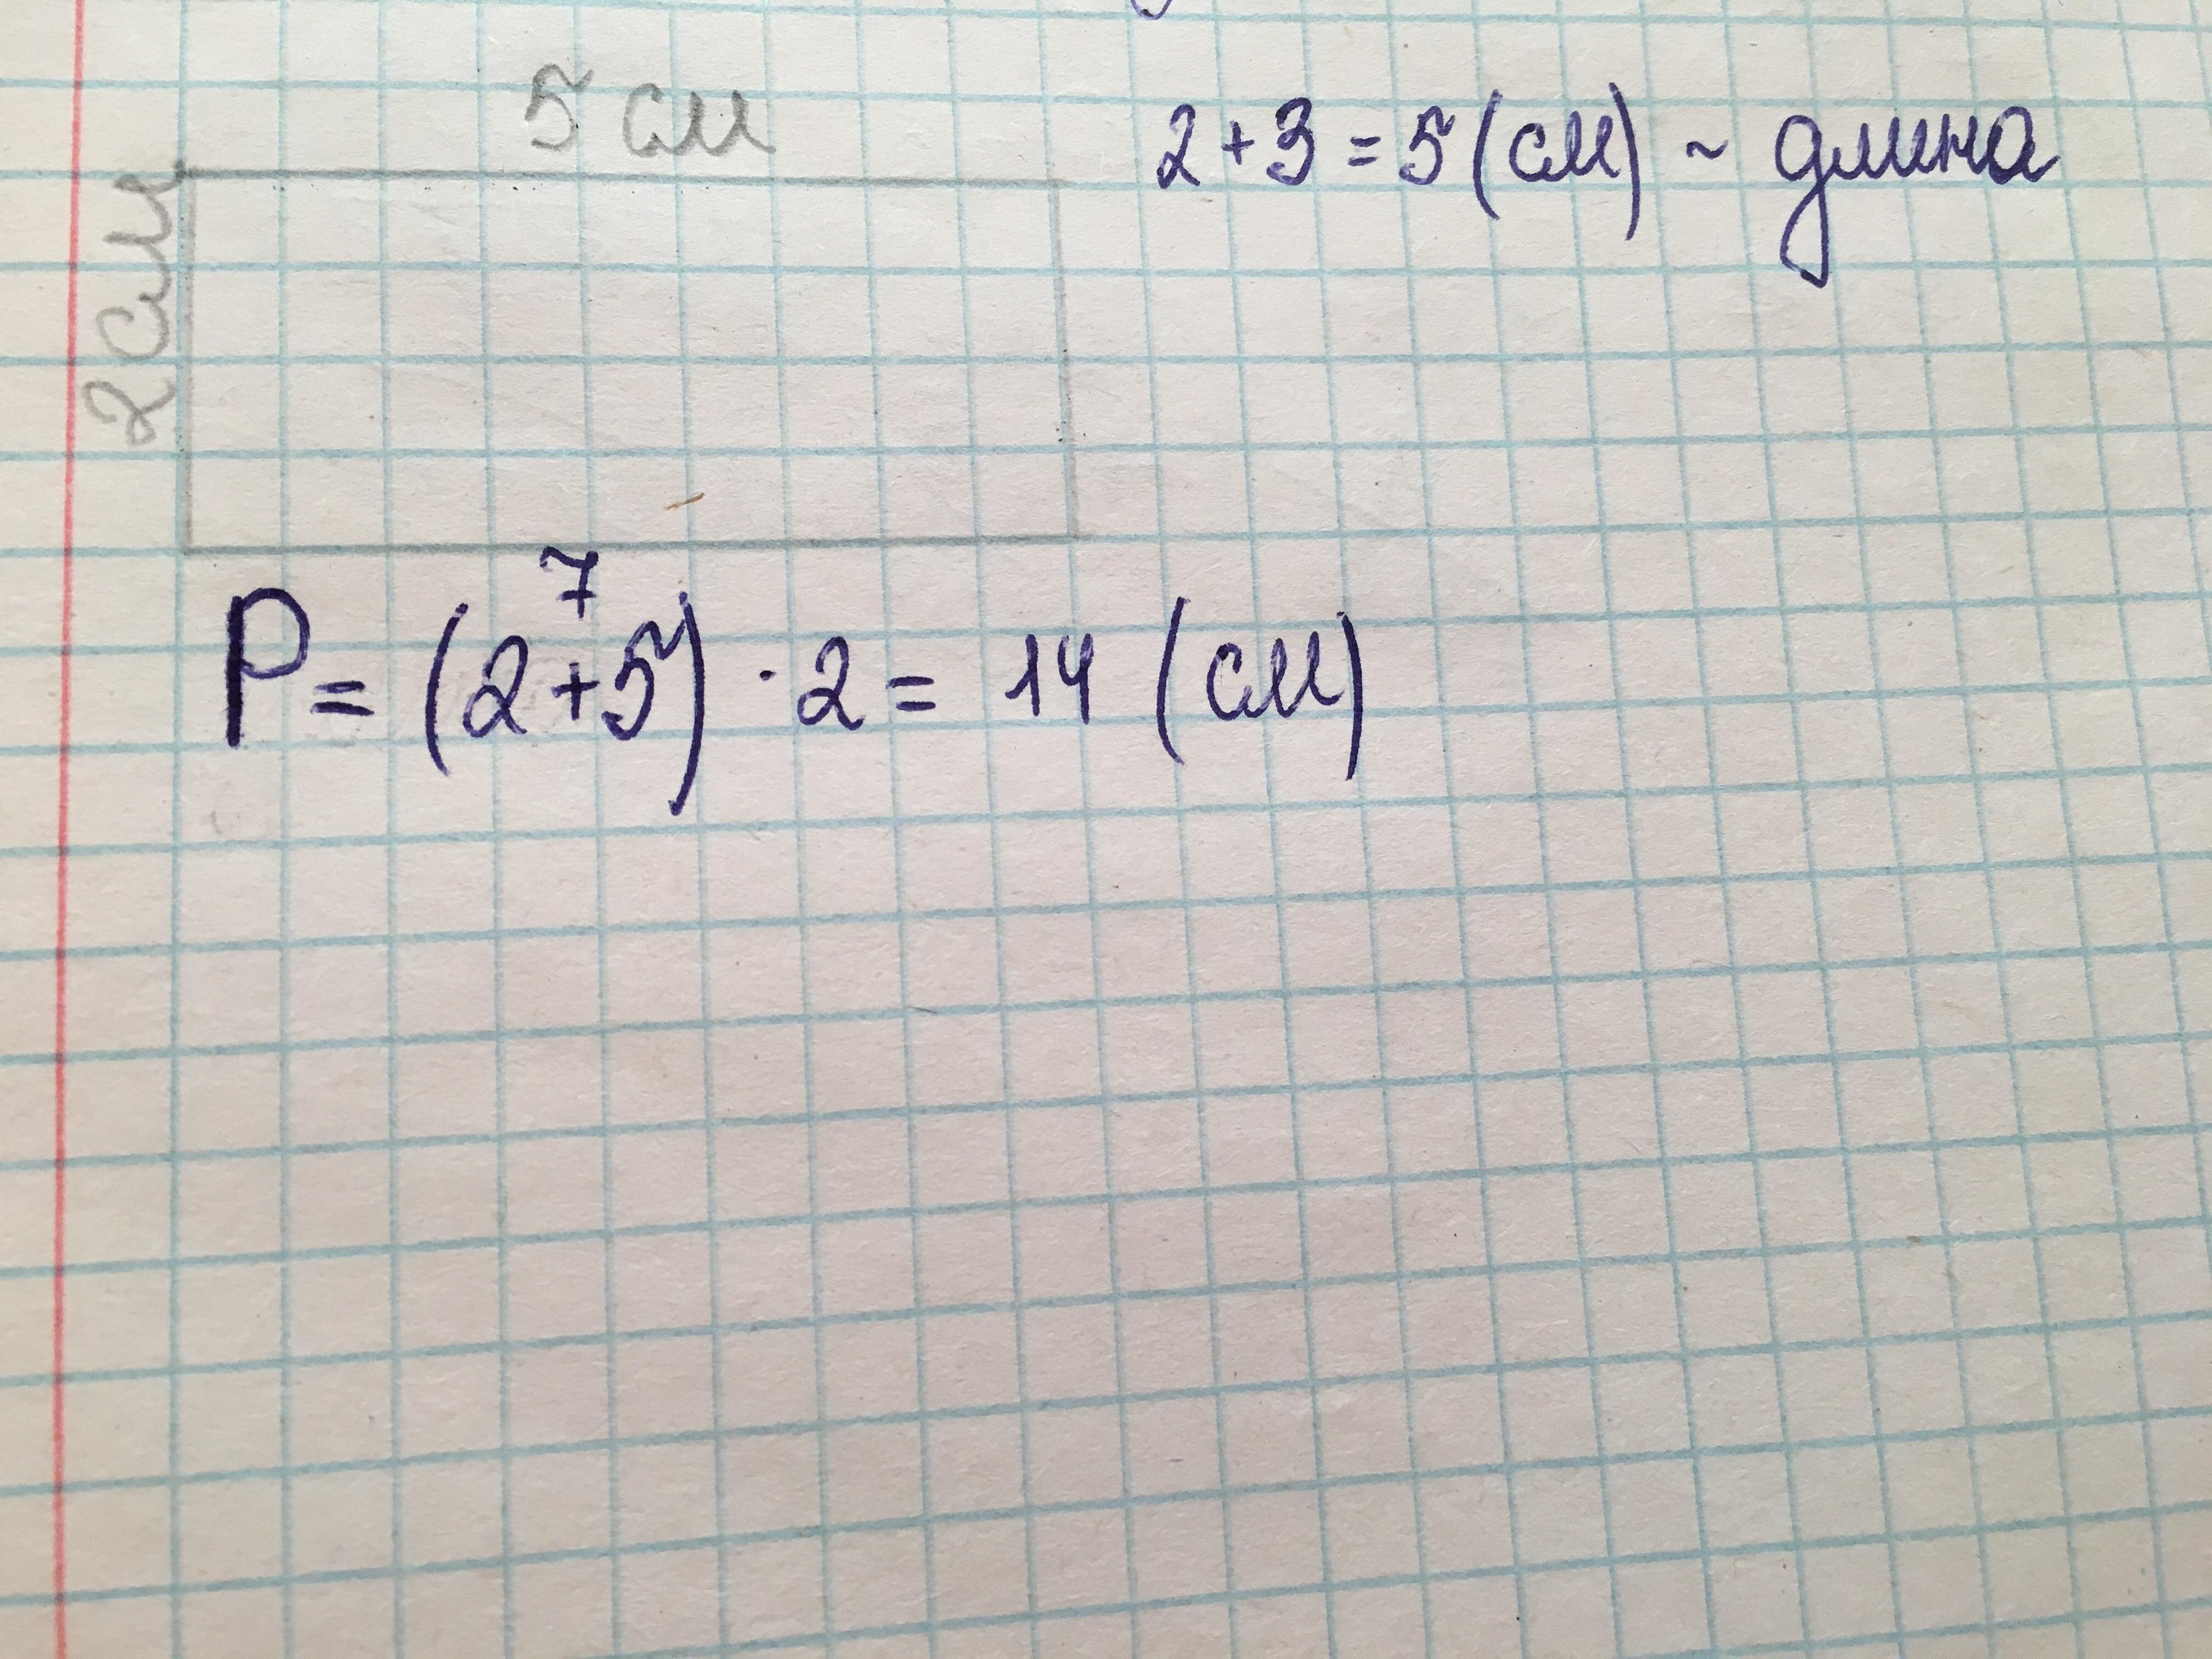 5 см
2+3=5(см) - длина
2 см
7
P=(2+5)·2= 14 (см)